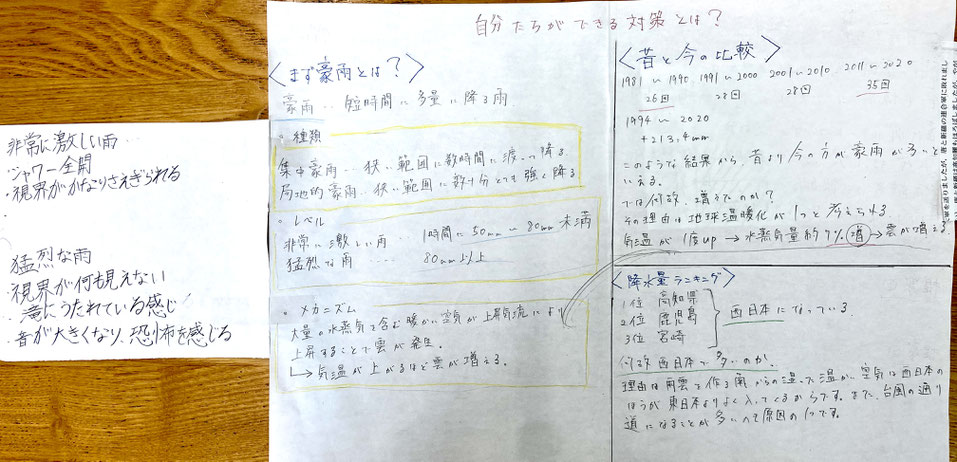 非常に激しい雨…
・シャワー全開
・視界がかなりさえぎられる
・
猛烈な雨
・視界が何も見えない
・滝にうたれている感じ
・音が大きくなり、恐怖を感じる
自分たちができる対策とは?
〈まず豪雨とは?〉
豪雨‥短時間に多量に降る雨
。種類
集中豪雨‥狭い範囲に数時間に渡って降る
局地的豪雨‥狭い範囲に数十分とても強く降る
。レベル
非常に激しい雨‥ 1時間に50mm〜80mm未満
猛烈な雨 ‥‥ 80mm以上
。メカニズム
大量の水蒸気を含む暖かい空気が上昇気流により
上昇することで雲が発生。
→気温が上がるほど雲が増える。
〈昔と今の比較〉
1981〜1990 1991〜2000 2001〜2010 2011〜2020
26回 28回 28回 35回
1994〜2020
+213.4mm
このような結果から、昔より今の方が豪雨が多いと
いえる。
では何故、増えたのか?
その理由は地球温暖化が1つと考えられる
気温が1度up→水蒸気量約7%増→雲が増える
〈降水量ランキング〉
1位 高知県
2位 鹿児島
3位 宮崎
西日本になっている
何故西日本で多いのか。
理由は雨雲を作る南からの湿った温かい空気は西日本の
ほうが東日本よりよく入ってくるからです。また、台風の通り
道になることが多いので原因の1つです。